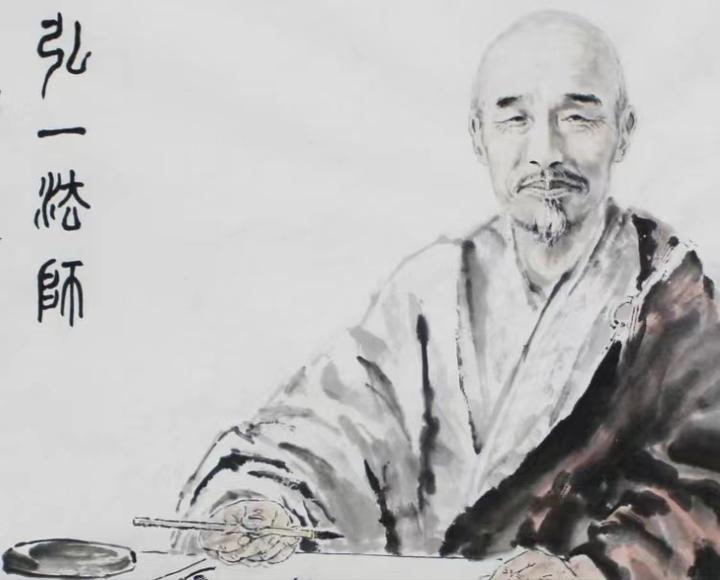 弘一法師